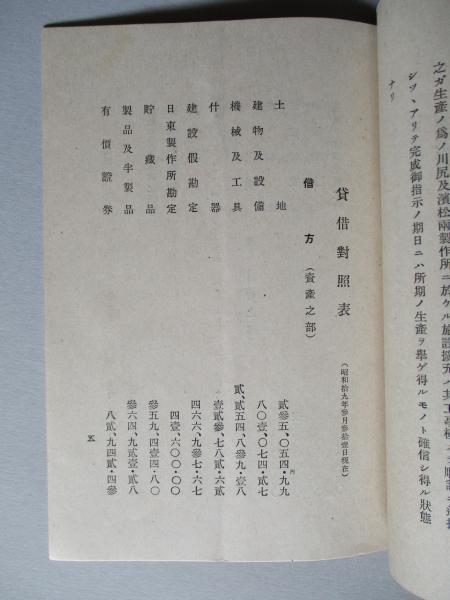 之ガ生産ノ爲ノ川尻及濱松兩製作所ニ於ケル施設擴充ノ
シツ、アリテ完成御指示ノ期日ニハ所期ノ生産ヲ擧ゲ得ルモノト確信シ得ル狀態
ナリ
貸借對照表（昭和拾九年參月參拾壹日現在）
借方（資產之部）
土地 貳參五、〇五四・九九
建物及設備 八〇壹、〇七四・貳七
機械及工具 貳、貳五四、八參九・壹八
什器 壹貳參、八七八・六貳
建設假勘定 四六六、九參七・六七
日東製作所勘定 四壹、六〇〇・〇〇
貯藏品 參五九、四壹四・八〇
製品及半製品 參六四、九貳壹・貳八
有價證券 八貳、九四貳・四參
五